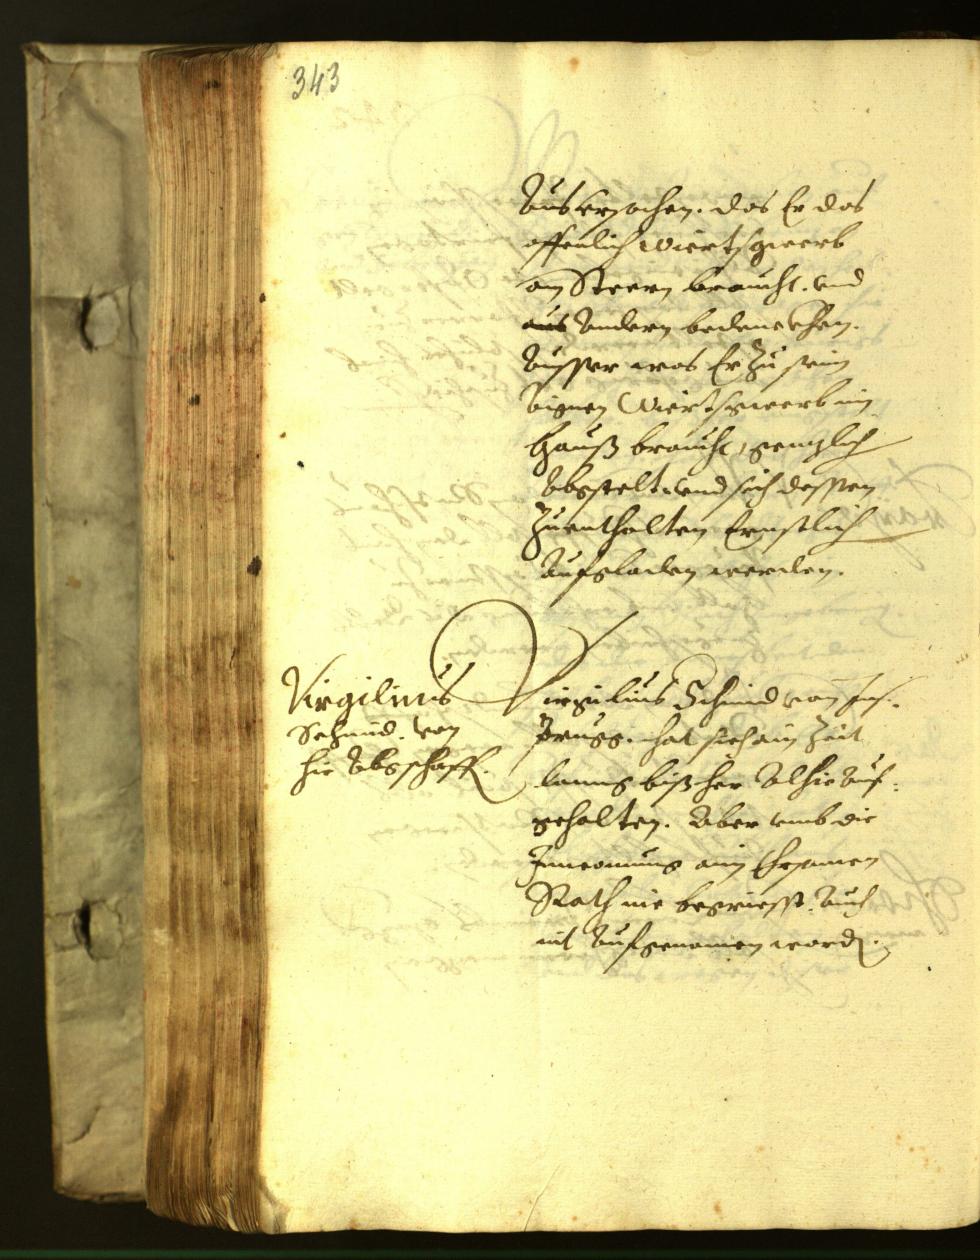 343
Aus Ursachen. das Er das
offenlich Wiertsgwerb
am Steern braucht. vnd
aus Andern bedenckhen.
Ausser was Er Zu sein
Aignen Wiertsgwerb im
Hauß braucht, genzlich
Abgstelt. vnd sich dessen
Zuenthalten Ernstlich
Aufgladen werden.
Virgilius
Schmid. von
hie Abgschafft.
Virgilius Schmid von Ins-
prugg. hat sich ain Zeit
lanng bißher Alhie Auf-
gehalten. Aber vmb die
Innwonung ain Ersamen
Rath nie begriesst. Auch
nit Aufgenomen word.